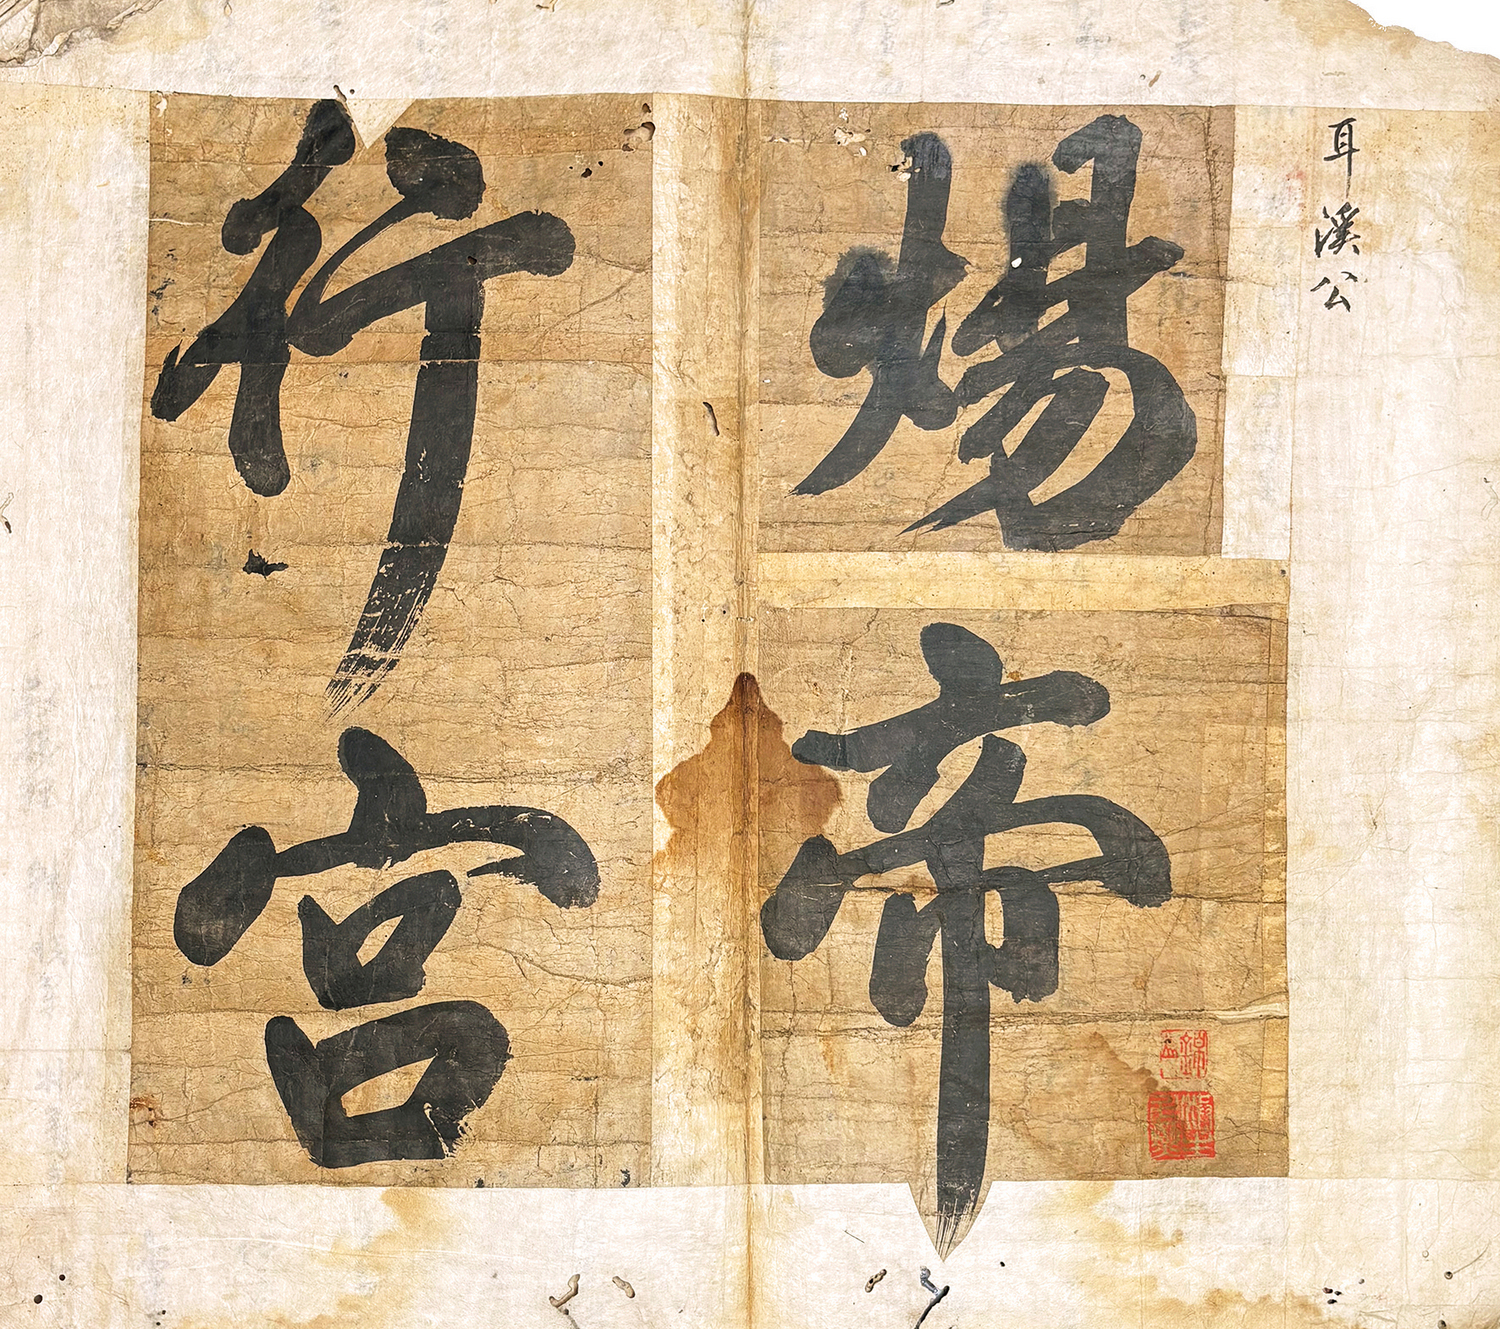 耳溪公
煬帝
行宮